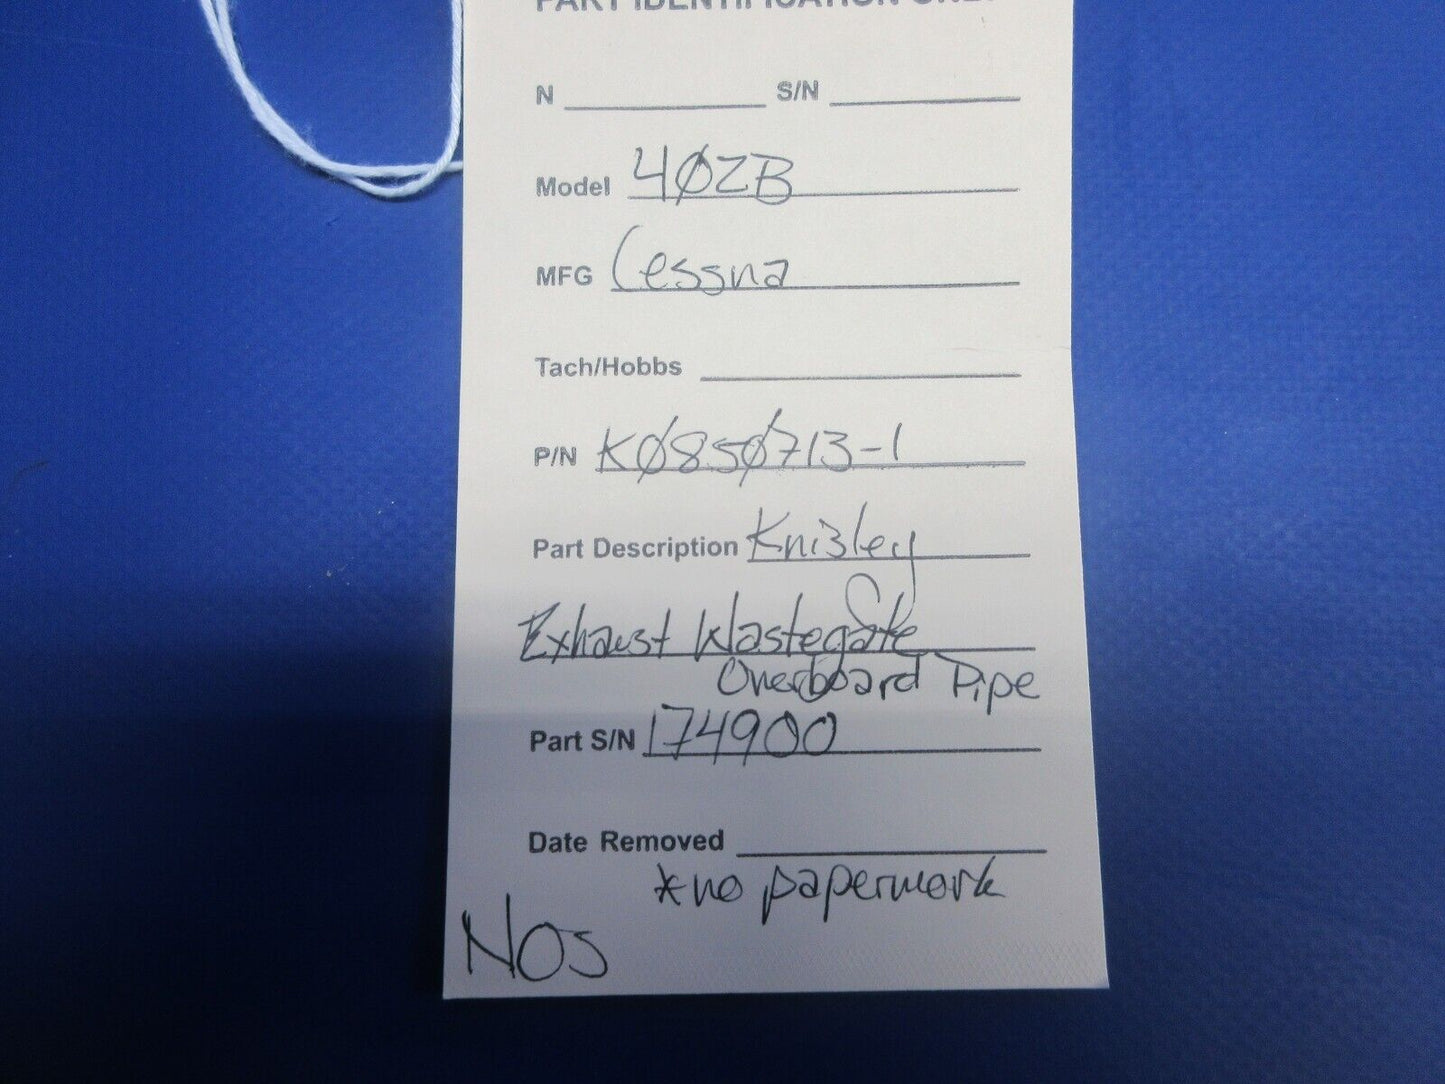 PART IDENTIFICATION ONLY
N S/N
Model 4Ø2B
MFG Cessna
Tach/Hobbs
P/N KØ85Ø713-1
Part Description Knisley
Exhaust Wastegate
Overboard Pipe
Part S/N 174900
Date Removed
*no paperwork
NOS